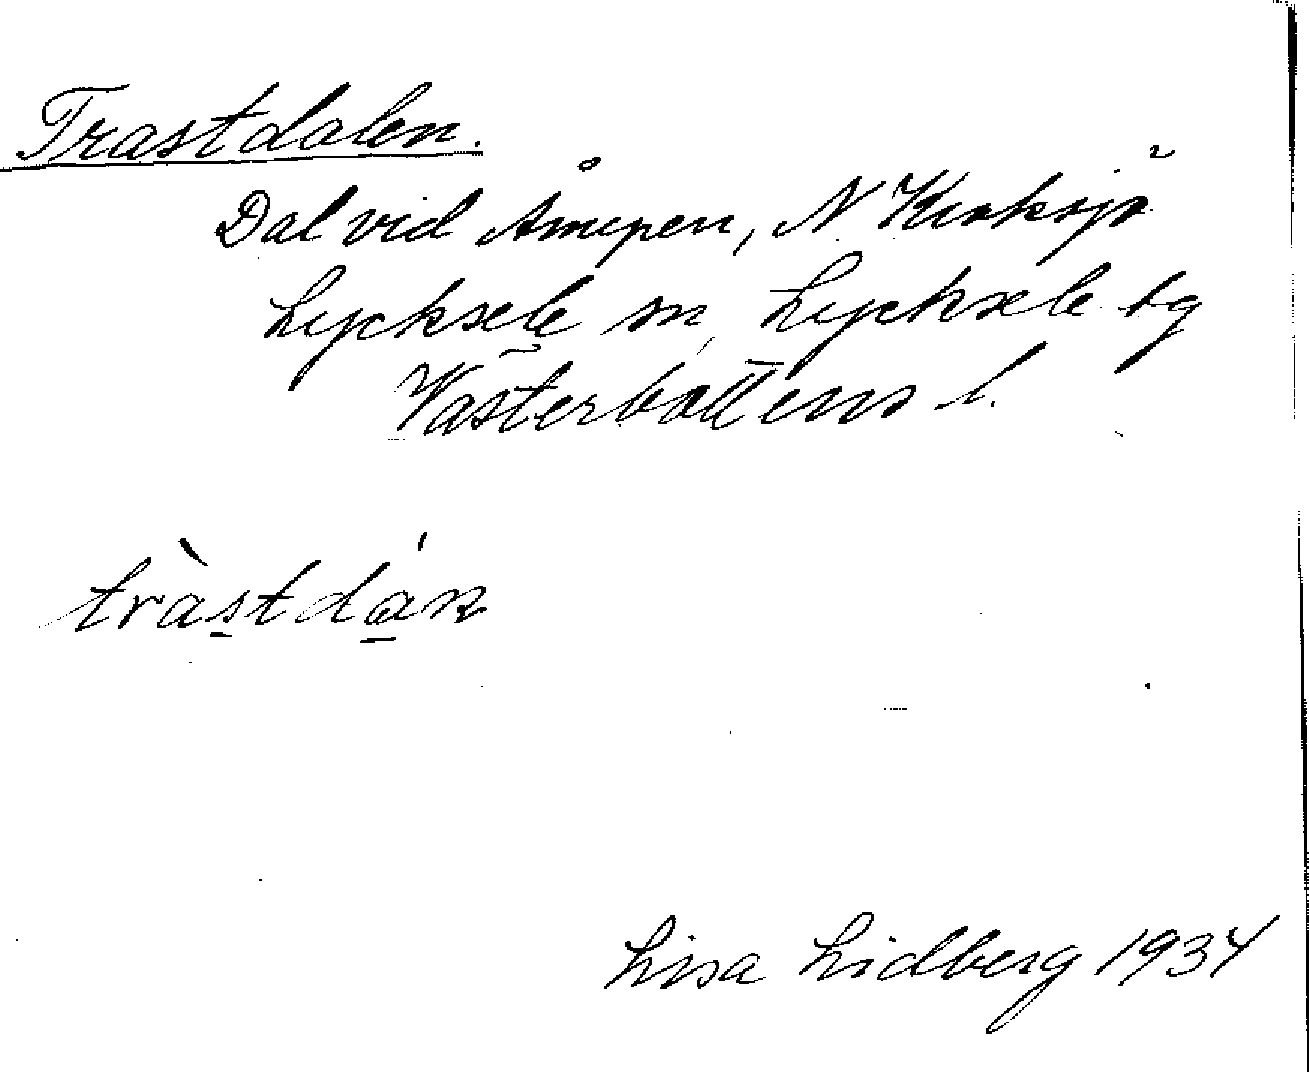 Trastdalen.
Dal vid Åmyren, N Kroksjö
Lycksele sn, Lycksele tg
Västerbottens l.
tràstdán
Lisa Lidberg 1934